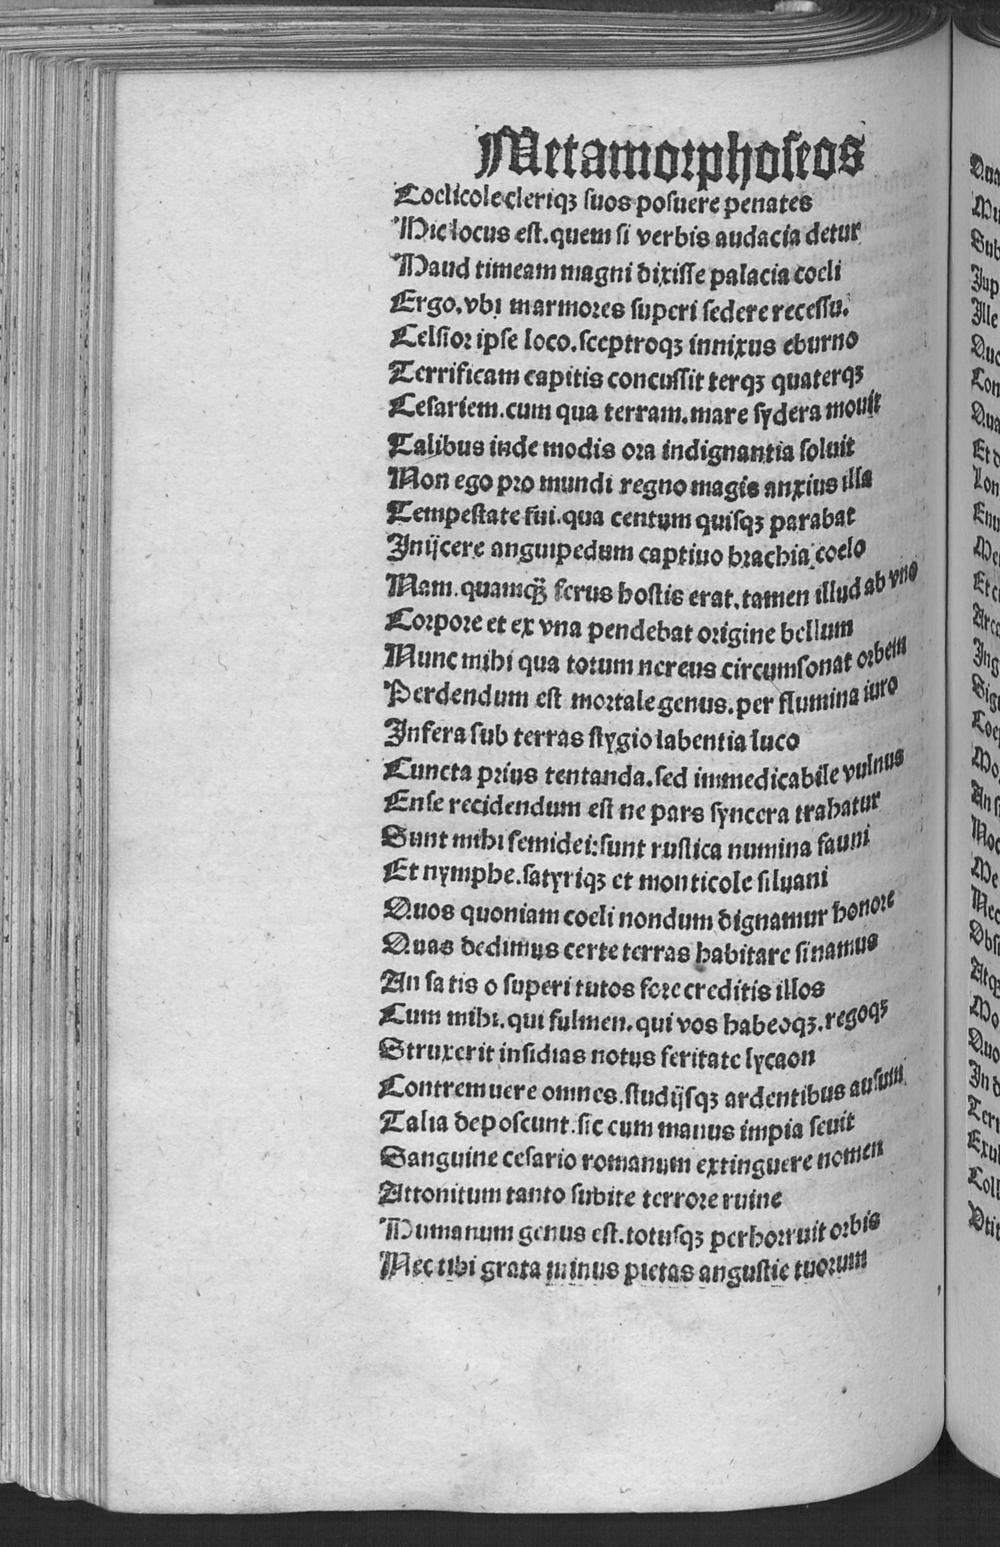 Metamorphoseos
Coelicole cleriqꝫ suos posuere penates
Hic locus est.quem si verbis audacia detur
Haud timeam magni dixisse palacia coeli
Ergo.vbi marmores superi sedere recessu.
Celsior ipse loco.sceptroqꝫ innixus eburno
Terrificam capitis concussit terqꝫ quaterqꝫ
Cesariem.cum qua terram.mare sydera mouit
Talibus inde modis ora indignantia soluit
Non ego pro mundi regno magis anxius illa
Tempestate fui.qua centum quisqꝫ parabat
Inijcere anguipedum captiuo brachia coelo
Nam.quamqꝫ ferus hostis erat.tamen illud ab vno
Corpore et ex vna pendebat origine bellum
Nunc mihi qua totum nereus circumsonat orbem
Perdendum est mortale genus.per flumina iuro
Infera sub terras stygio labentia luco
Cuncta prius tentanda.sed immedicabile vulnus
Ense recidendum est ne pars syncera trahatur
Sunt mihi semidei:sunt rustica numina fauni
Et nymphe.satyriqꝫ et monticole siluani
Quos quoniam coeli nondum dignamur honore
Quas dedimus certe terras habitare sinamus
An satis o superi tutos fore creditis illos
Cum mihi.qui fulmen.qui vos habeoqꝫ.regoqꝫ
Struxerit insidias notus feritate lycaon
Contremuere omnes.studijsqꝫ ardentibus ausum
Talia deposcunt.sic cum manus impia seuit
Sanguine cesario romanum extinguere nomen
Attonitum tanto subite terrore ruine
Humanum genus est.totusqꝫ perhorruit orbis
Nec tibi grata minus pietas angustie tuorum